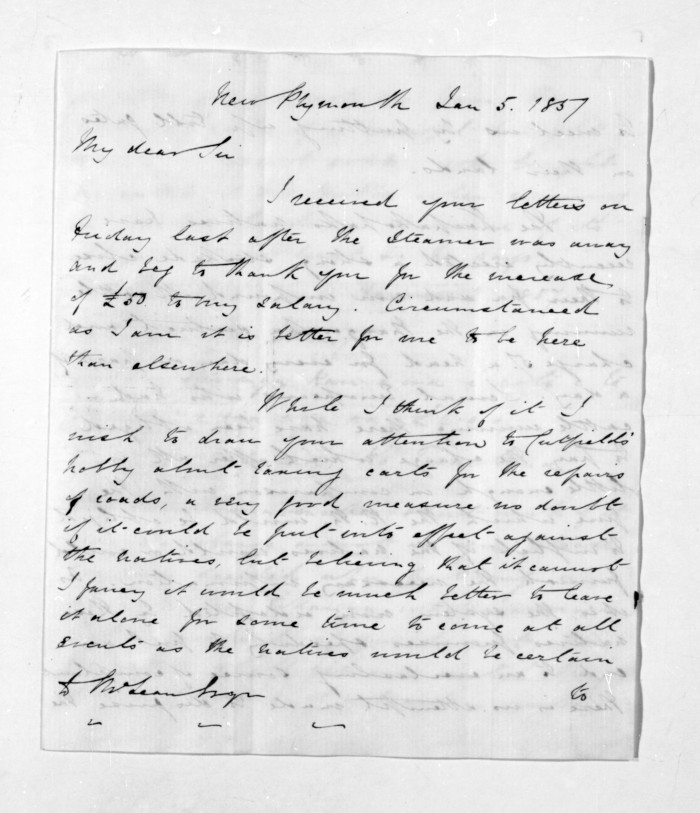 New Plymouth Jan 5. 1857
My dear Sir
I received your letters on
Friday last after the Steamer was away
and beg to thank you for the increase
of £50 to my salary. Circumstanced
as I am it is better for me to be here
than elsewhere.
While I think of it I
wish to draw your attention to Cutfield's
hobby about taxing carts for the repairs
of roads, a very good measure no doubt
if it could be put into effect against
the natives, but believing that it cannot
I fancy it would be much better to leave
it alone for some time to come at all
events as the natives would be certain
McLean Esqr to